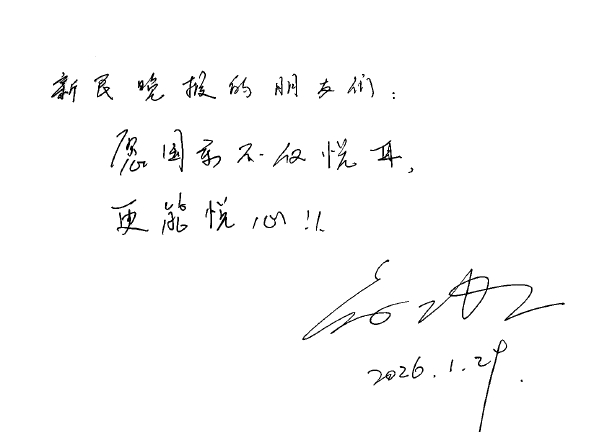 新民晚报的朋友们：
愿国乐不仅悦耳，
更能悦心！！
2026.1.29.